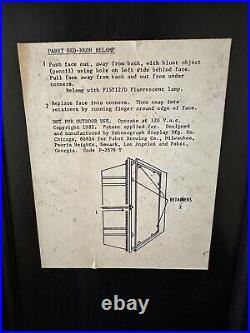 PABST NEO-NEON RELAMP
1 Push face out, away from back, with blunt object
(pencil) using hole on left side behind face.
Pull face away from back and out from under
corners.
Relamp with F15T12/D Fluorescent lamp.
2 Replace face into corners. Then snap into
retainers by running finger around edge of face.
NOT FOR OUTDOOR USE. Operate at 120 V.a.c.
Copyright 1982. Patent applied for. Designed
and manufactured by Embosograph Display Mfg. Co.
Chicago, 60614 for Pabst Brewing Co., Milwaukee,
Peoria Heights, Newark, Los Angeles and Pabst,
Georgia. Code P-2578 T
1
RETAINERS
2